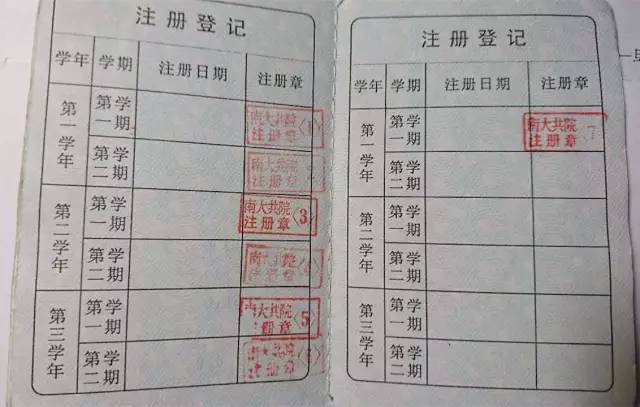 注册登记
学年 学期 注册日期 注册章
第一学年 第一学期 南大共院 注册章 〈1〉
第二学期 南大共院 注册章
第二学年 第一学期 南大共院 注册章 〈3〉
第二学期
第三学年 第一学期 大共院 章 〈5〉
第二学期
注册登记
学年 学期 注册日期 注册章
第一学年 第一学期 南大共院 注册章 7
第二学期
第二学年 第一学期
第二学期
第三学年 第一学期
第二学期